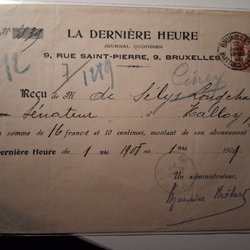 N°
LA DERNIÈRE HEURE
JOURNAL QUOTIDIEN
9, RUE SAINT-PIERRE, 9, BRUXELLES
12
7/1299
Ciney
Reçu de M de Sélys Longchamps
Sénateur à Halloy
la somme de 16 francs et 10 centimes, montant de son abonnement
Dernière Heure du 1 MAI 1908 au 1 MAI 1909
Un administrateur,